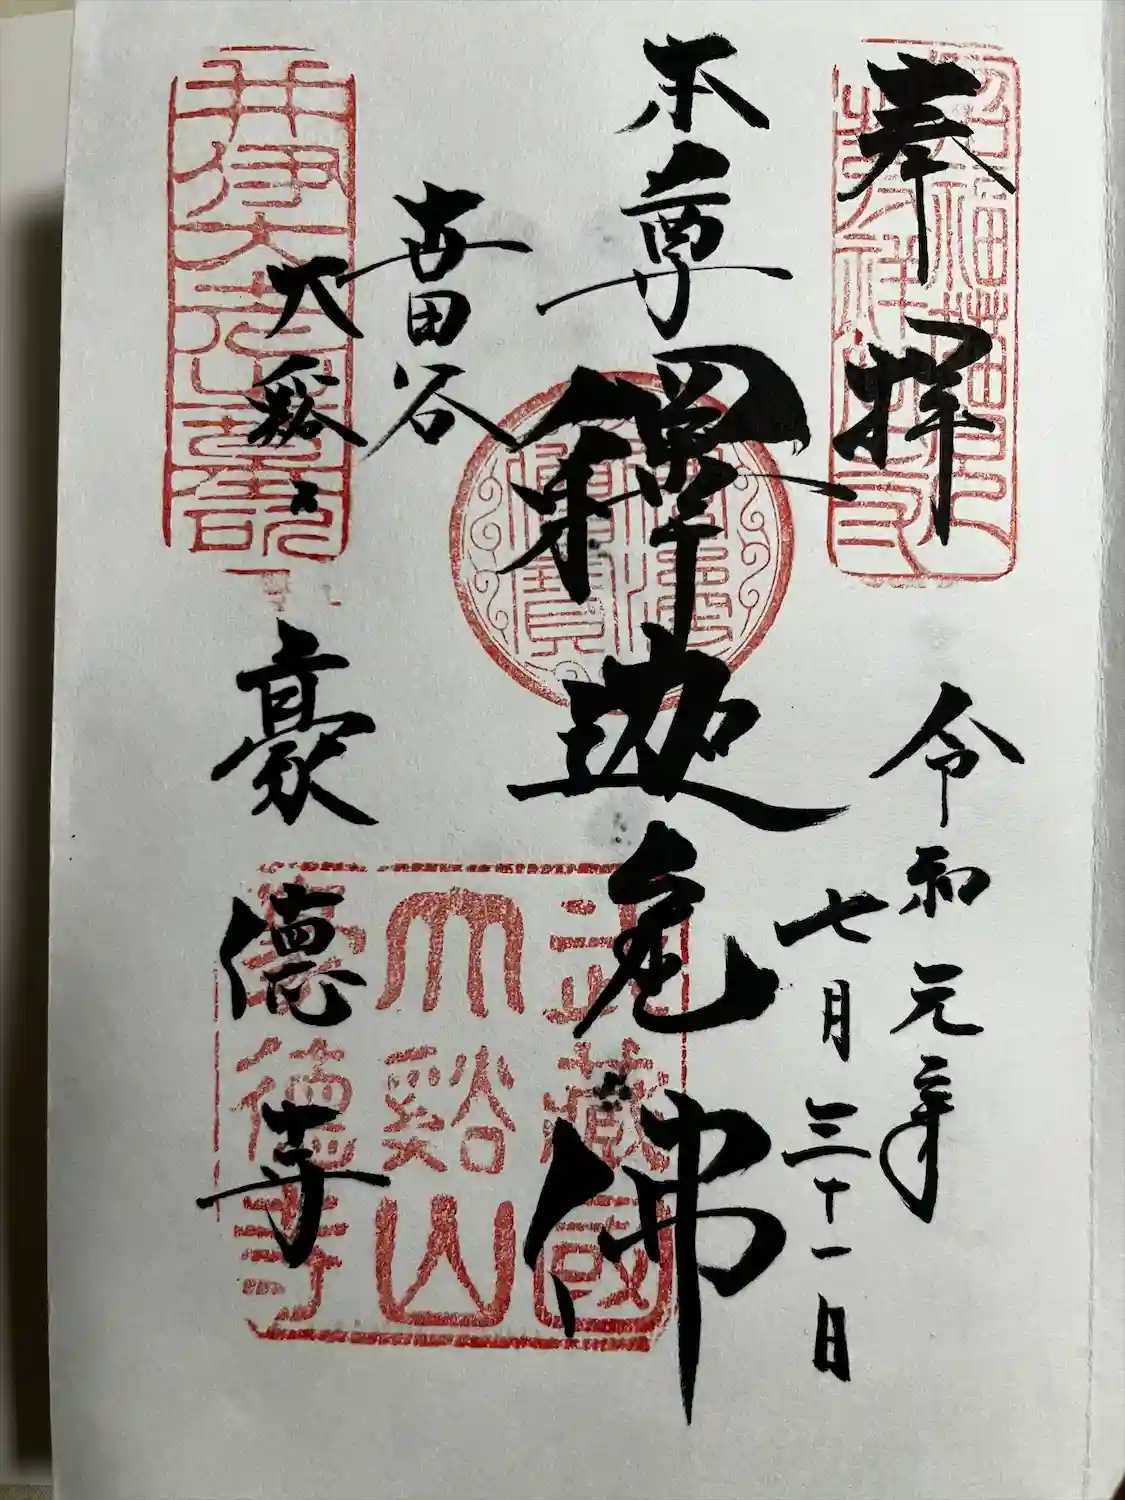 奉拝
招福猫児
令和元年
七月三十一日
本尊
釋迦牟尼佛
佛法僧寶
世田谷
大谿山
豪德寺
武藏國
大谿山
豪德寺